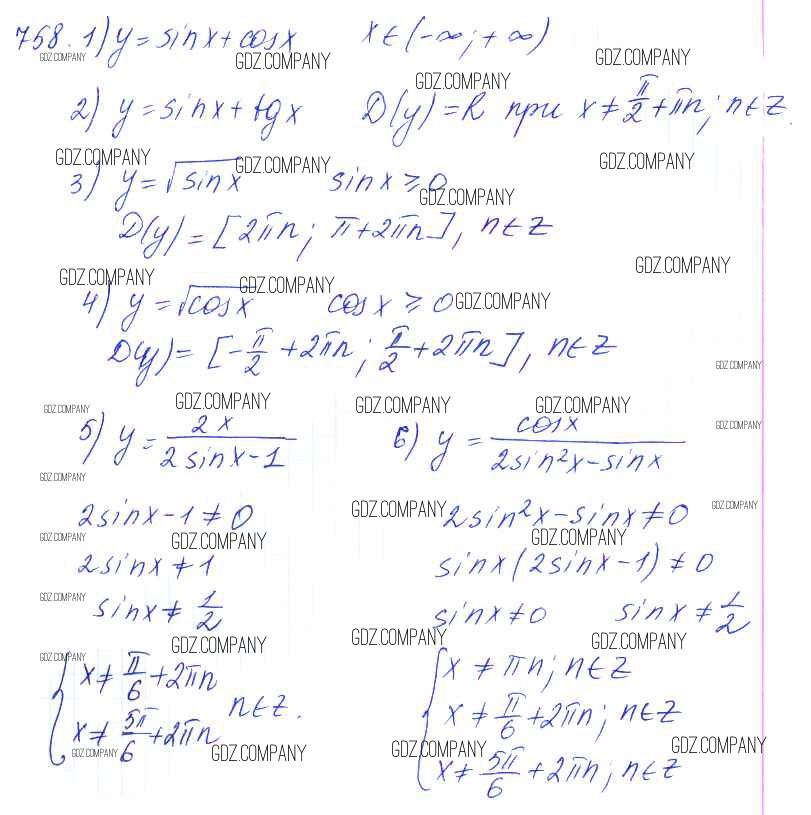 758. 1) y = sinx + cosx   x ∈ (-∞; +∞)
GDZ.COMPANY GDZ.COMPANY GDZ.COMPANY
GDZ.COMPANY
2) y = sinx + tgx   D(y) = R при x ≠ π/2 + πn; n ∈ Z.
GDZ.COMPANY GDZ.COMPANY GDZ.COMPANY
3) y = √sinx   sinx ≥ 0
GDZ.COMPANY
D(y) = [2πn; π + 2πn], n ∈ Z
GDZ.COMPANY
GDZ.COMPANY GDZ.COMPANY
4) y = √cosx   cosx ≥ 0 GDZ.COMPANY
D(y) = [-π/2 + 2πn; π/2 + 2πn], n ∈ Z
GDZ.COMPANY
GDZ.COMPANY GDZ.COMPANY GDZ.COMPANY GDZ.COMPANY
GDZ.COMPANY
5) y = 2x/(2sinx - 1)   6) y = cosx/(2sin²x - sinx)
GDZ.COMPANY
2sinx - 1 ≠ 0   GDZ.COMPANY 2sin²x - sinx ≠ 0 GDZ.COMPANY
GDZ.COMPANY GDZ.COMPANY GDZ.COMPANY
2sinx ≠ 1   sinx(2sinx - 1) ≠ 0
GDZ.COMPANY
sinx ≠ 1/2   sinx ≠ 0   sinx ≠ 1/2
GDZ.COMPANY GDZ.COMPANY GDZ.COMPANY
GDZ.COMPANY
{ x ≠ π/6 + 2πn   { x ≠ πn; n ∈ Z
n ∈ Z.   x ≠ π/6 + 2πn; n ∈ Z
x ≠ 5π/6 + 2πn
GDZ.COMPANY GDZ.COMPANY GDZ.COMPANY GDZ.COMPANY
x ≠ 5π/6 + 2πn; n ∈ Z